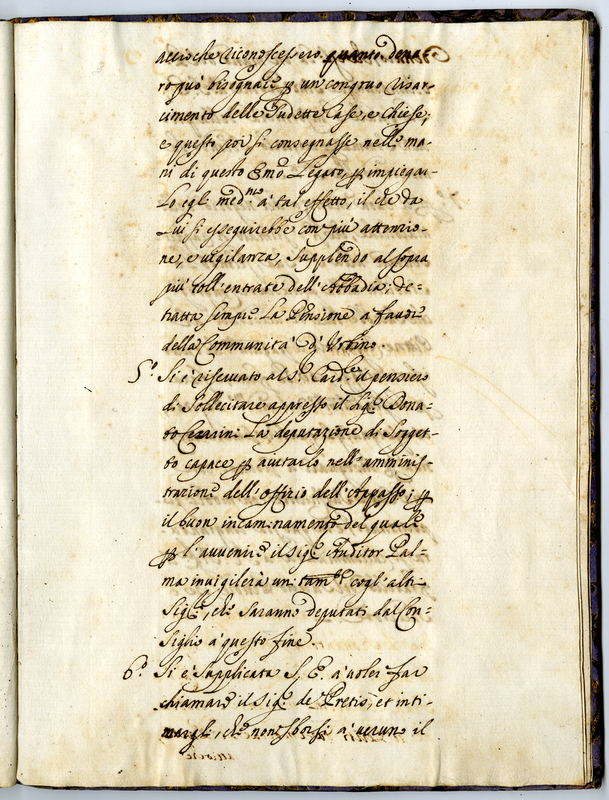 acciò che riconoscessero quanto dena-
ro può bisognare p un congruo risar-
cimento delle sudette Case, e Chiese,
e questo poi si consegnasse nelle ma-
ni di questo Emo Legato, p impiegar-
lo egli med.mo à tal effetto, il che da
Lui si esseguirebbe con più attenzio-
ne, e vigilanza, supplendo al sopra
più coll'entrate dell'Abbadia; de-
tratta sempre La Pensione a favore
della Communità d'Urbino.
5.° Si è riservato al S.r Card.le il pensiero
di sollecitare appresso il Sig.r Dona-
to Cezarini La deputazione di Sogget-
to capace p aiutarlo nell'amminis-
trazione dell'offizio dell'Appasso; p
il buon incaminamento del quale
p l'avvenire il Sig.r Auditor Pal-
ma invigilerà un tam.te cogl'altri
Sig.ri, che saranno deputati dal Con-
siglio à questo fine.
6.° Si è supplicata S. E. à voler far
chiamare il Sig.r de Pretis, et inti-
margli, che non sborsi à veruno il